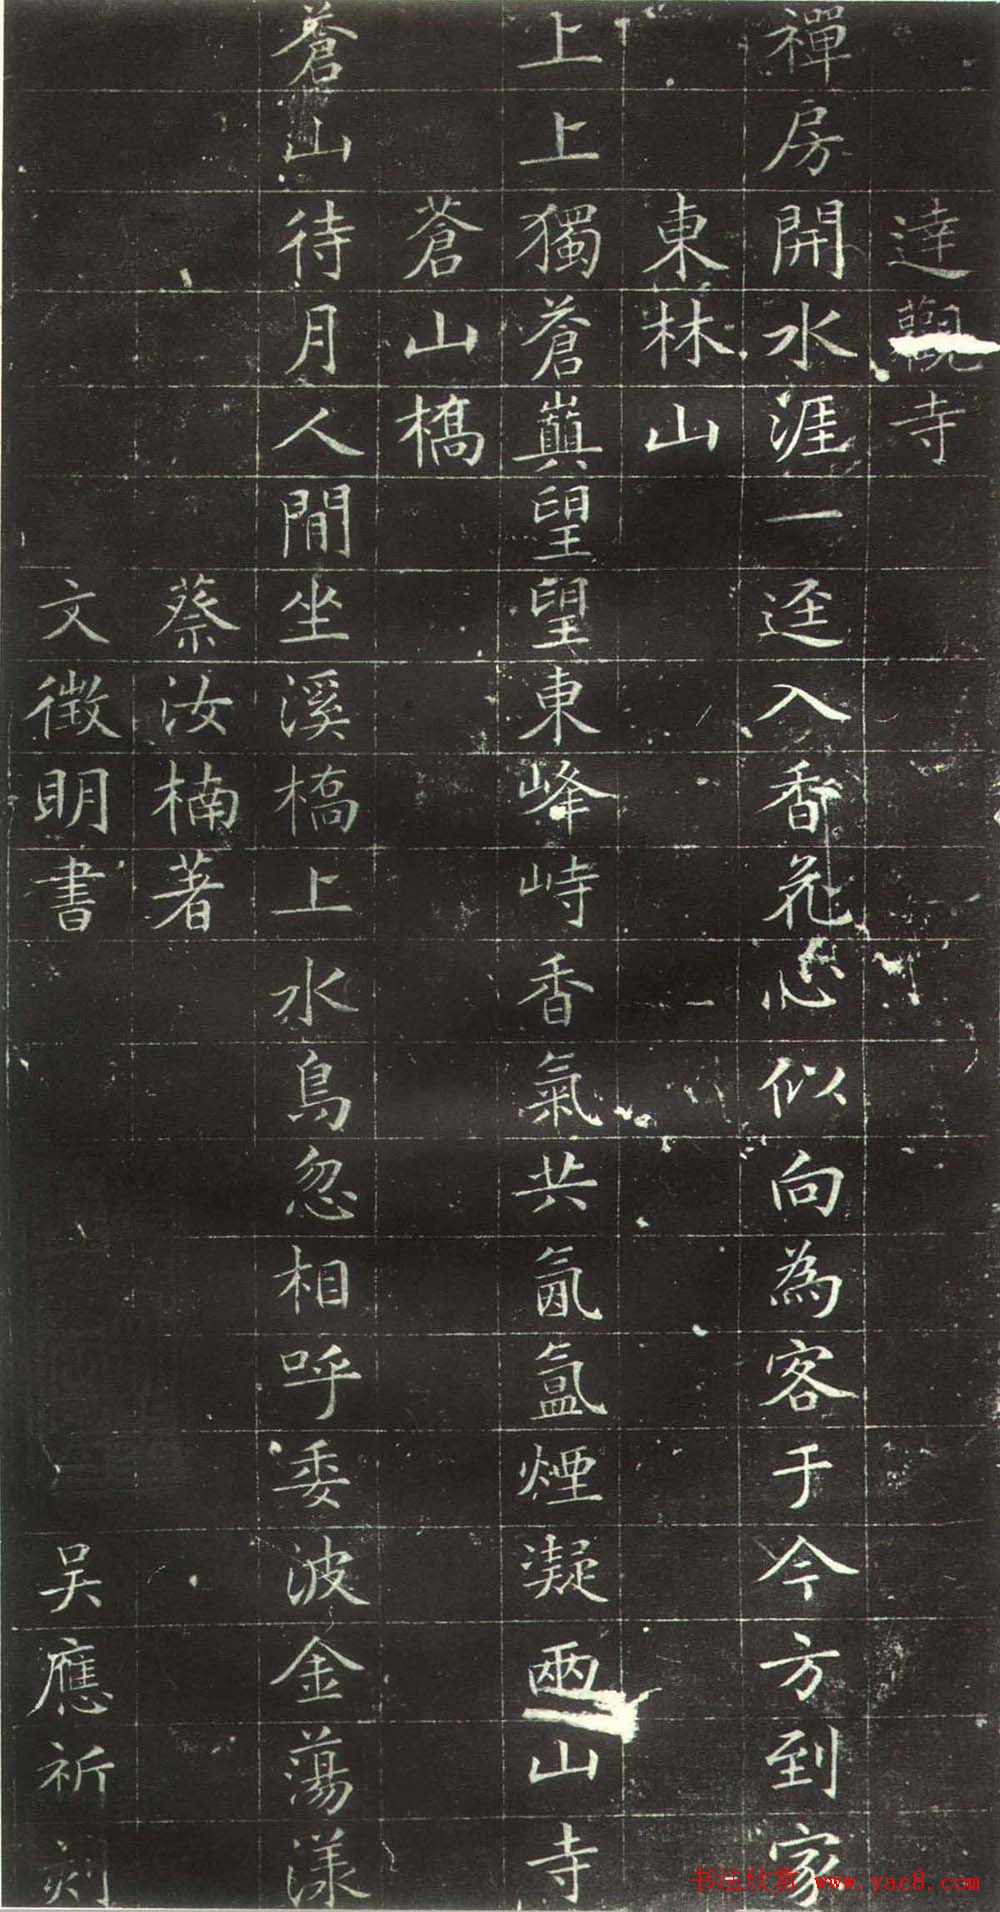 達觀寺
禪房開水涯一逕入香花心似向為客于今方到家
東林山
上上獨蒼巔望望東峰峙香氣共氤氳煙凝兩山寺
蒼山橋
蒼山待月人閒坐溪橋上水鳥忽相呼委波金蕩漾
蔡汝楠著
文徵明書
吴應祈刻
书法欣赏 www.yac8.com